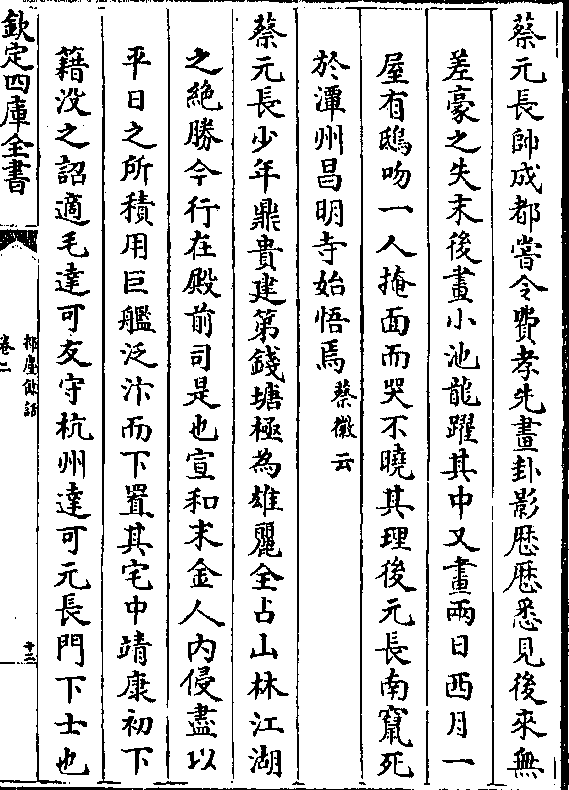 蔡元長帥成都嘗令費孝先畫卦影歴歴悉見後來無
差豪之失末後畫小池龍躍其中又畫兩日西月一
屋有鴟吻一人掩面而哭不曉其理後元長南竄死
於潭州昌明寺始悟焉蔡徽云
蔡元長少年鼎貴建第錢塘極為雄麗全占山林江湖
之絶勝今行在殿前司是也宣和末金人内侵盡以
平日之所積用巨艦泛汴而下置其宅中靖康初下
籍没之詔適毛達可友守杭州達可元長門下士也
欽定四庫全書
揮麈餘話
卷二
十三